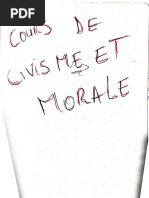 COURS DE
CIVISME ET
MORALE